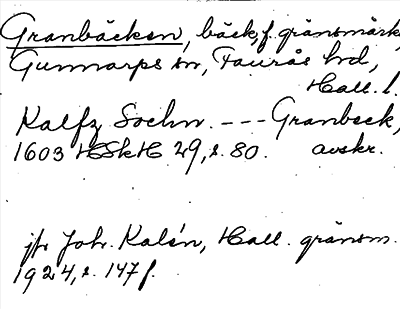 Granbäcken, bäck, f. gränsmärk,
Gunnarps sn, Faurås hd,
Hall. l.
Kalfz Sochn. --- Granbeck,
1603 HSkH 29, s. 80. avskr.
jfr Joh. Kalén, Hall. gränsm.
1924, s. 147 f.